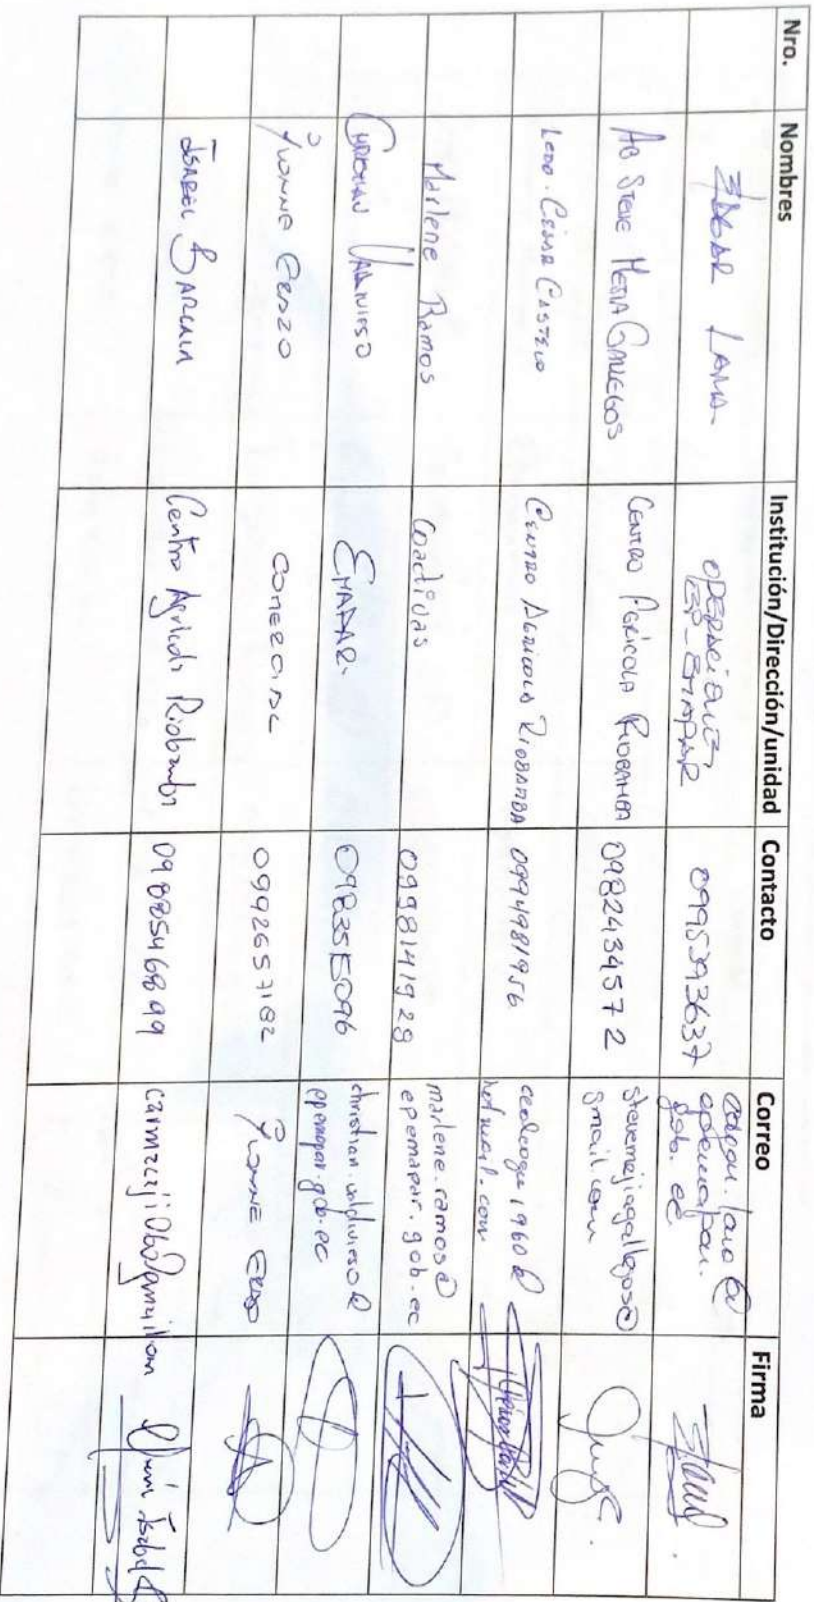 Nro. Nombres Institución/Dirección/unidad Contacto Correo Firma
EDGAR LARA OPERACIONES EP-EMAPAR 0995393637
AB STEVE MEJIA GALLEGOS CENTRO AGRICOLA RIOBAMBA 0982434572 stevemejiagallegos@
gmail.com
LCDO. CÉSAR CASTELO CENTRO AGRICOLA RIOBAMBA 0994981956 1960@
hotmail.com
Marlene Ramos Coactivas 0998141928 marlene.ramos@
epemapar.gob.ec
CHRISTIAN VALDIVIESO EMAPAR- christian.valdivieso@
epemapar.gob.ec
YVONNE ERAZO 0992657182 YVONNE ERAZO
ISABEL BARCALA Centro Agrícola Riobamba 0988546899